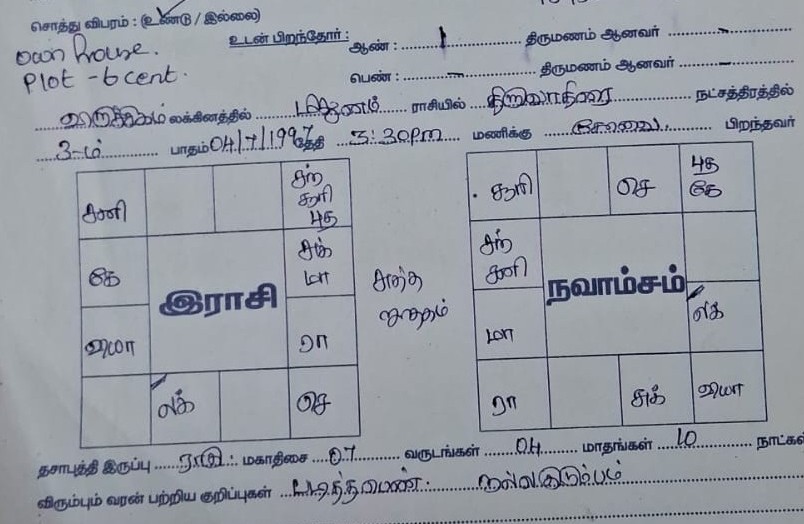 சொத்து விபரம்: (உண்டு / இல்லை)
own house.
உடன் பிறந்தோர்: ஆண் : 1 திருமணம் ஆனவர் -
Plot - 6 cent.
பெண் : - திருமணம் ஆனவர் -
லக்கினத்தில் மிதுனம் ராசியில் திருவாதிரை நட்சத்திரத்தில்
3-ம் பாதம் 04/7/1997 தேதி 3:30pm மணிக்கு பிறந்தவர்
சனி
சந்
சூரி
புத
கே
சுக்
மா
இராசி
வியா
ரா
லக்
செ
சுத்த
ஜாதகம்
சூரி
செ
புத
கே
சந்
சனி
நவாம்சம்
மா
லக்
ரா
சுக்
வியா
தசாபுத்தி இருப்பு ராகு : மகாதிசை 07 வருடங்கள் 04 மாதங்கள் 10 நாட்கள்
விரும்பும் வரன் பற்றிய குறிப்புகள் படித்தமைண். நல்லகுடும்பம்